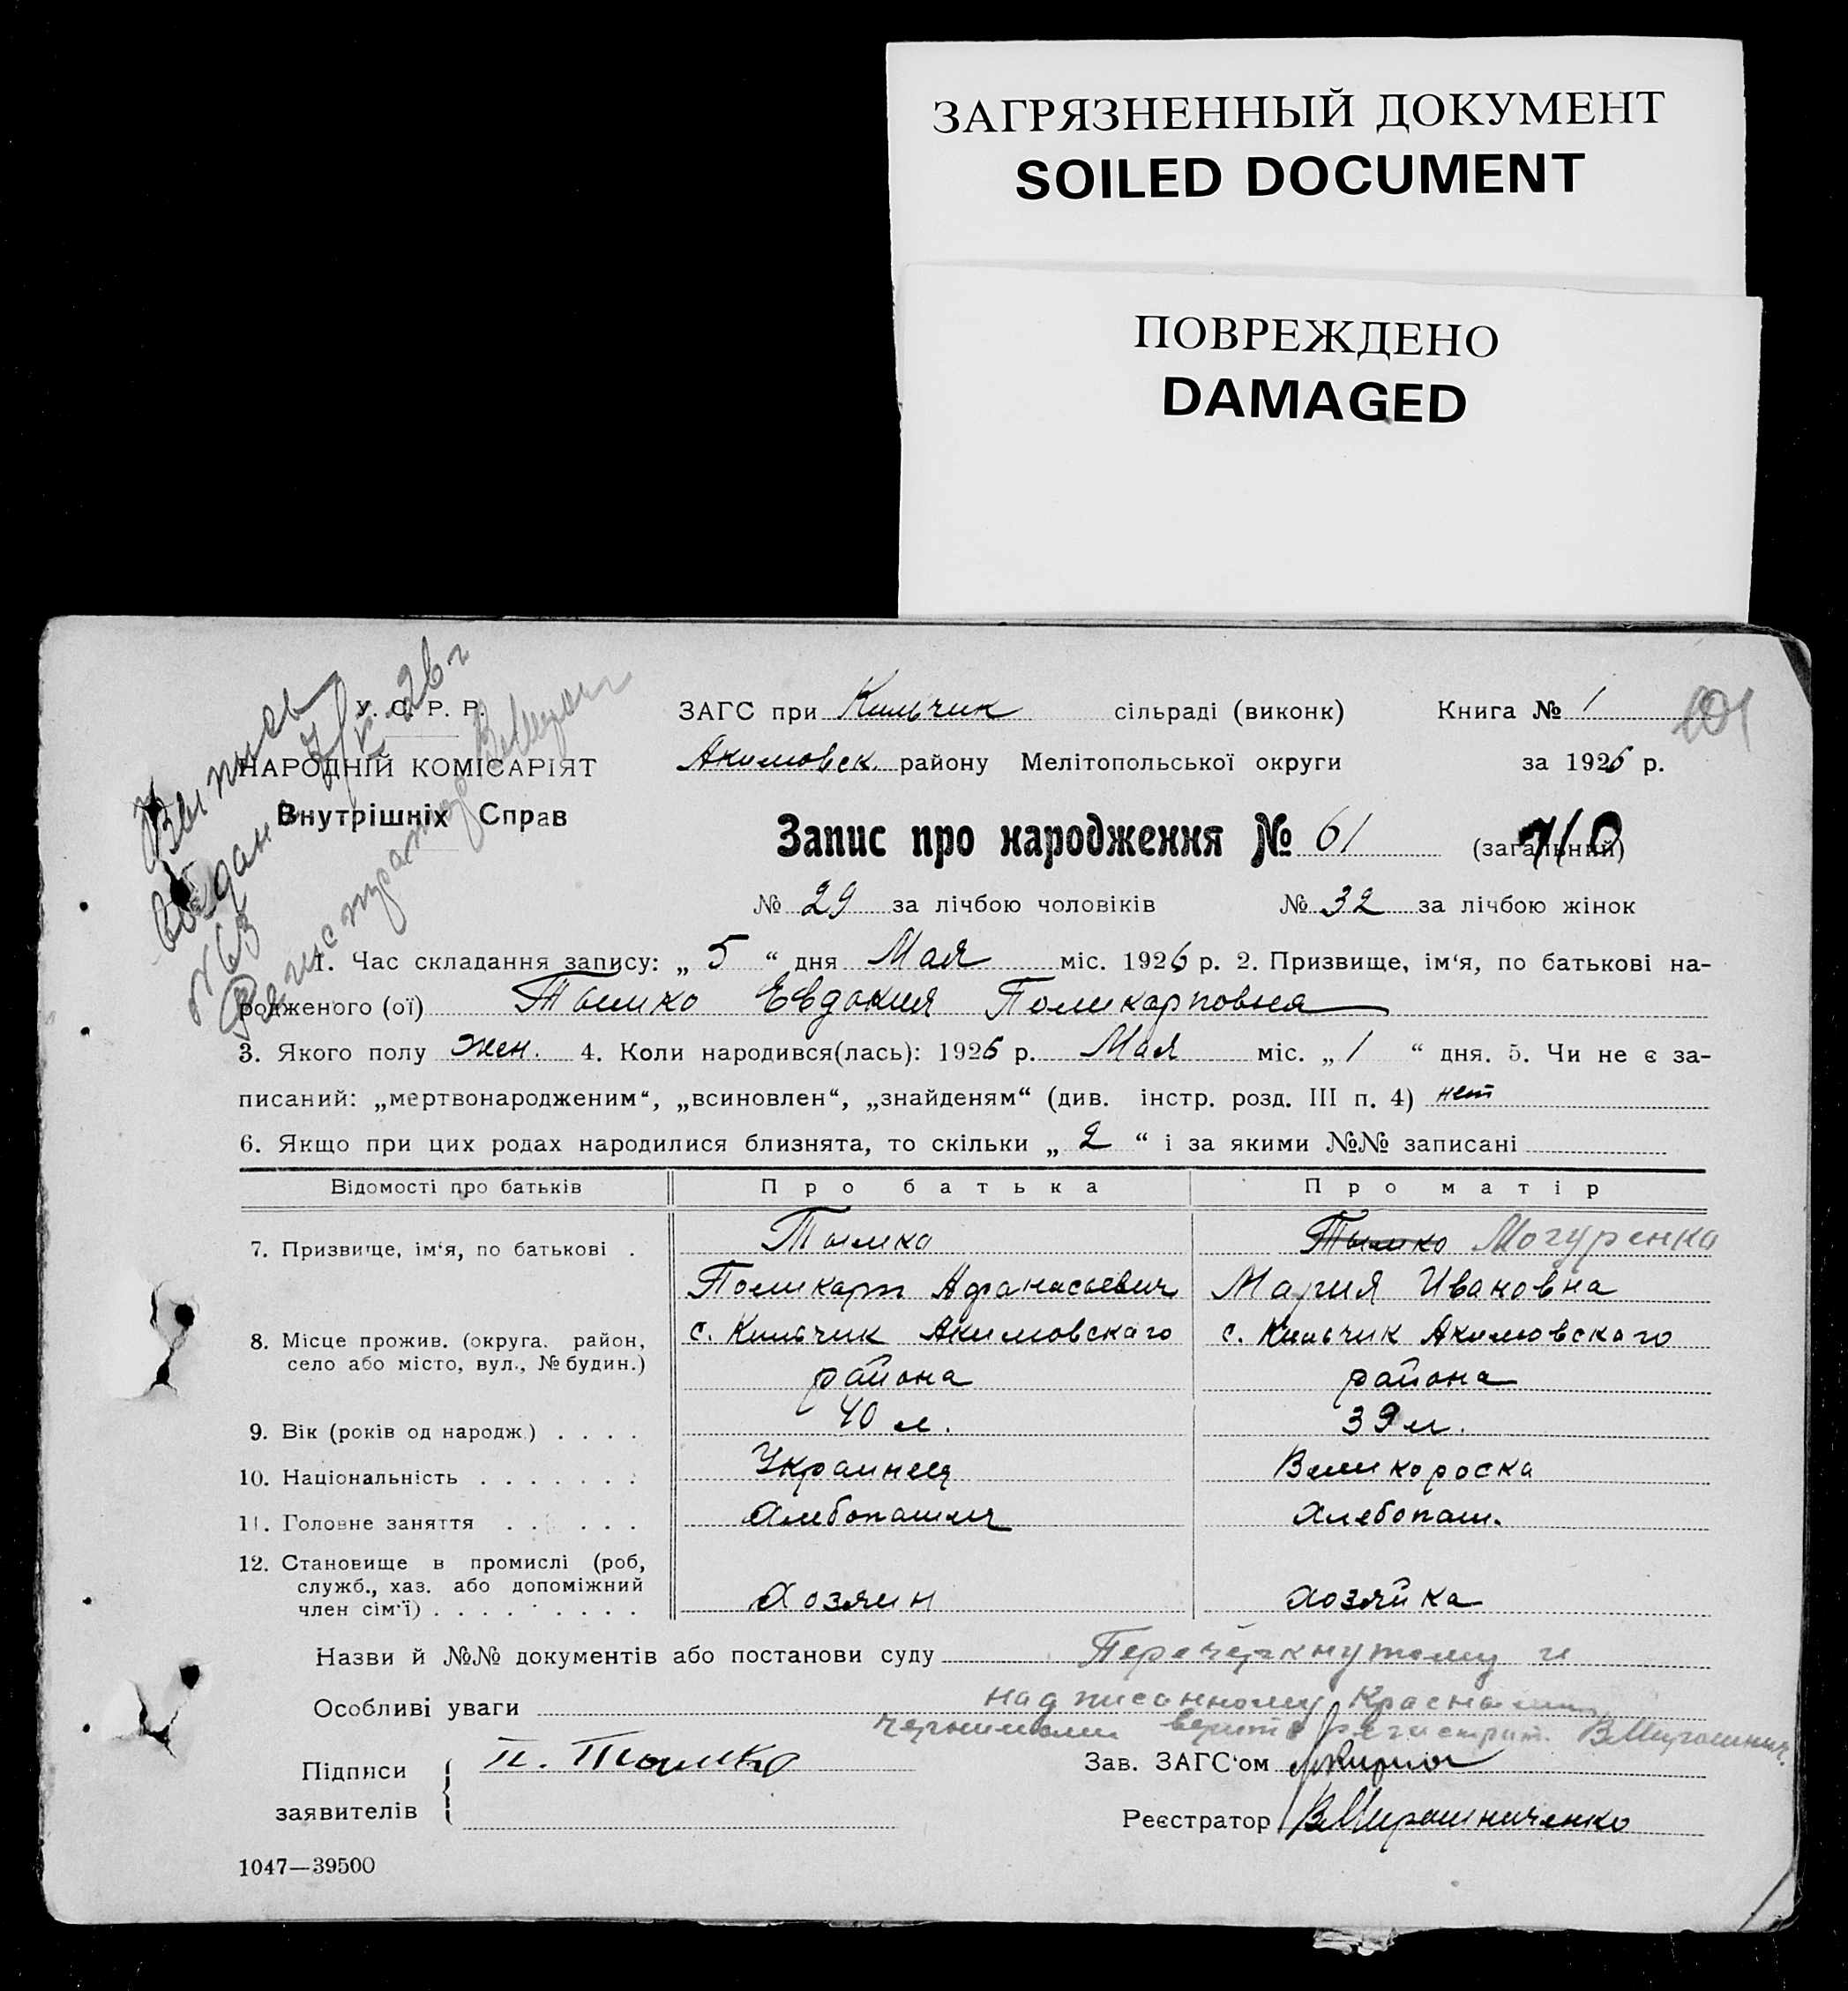 ЗАГРЯЗНЕННЫЙ ДОКУМЕНТ
SOILED DOCUMENT
ПОВРЕЖДЕНО
DAMAGED
Выпись
выдана
№ 63
Регистратор
У. С. Р. Р.
НАРОДНІЙ КОМІСАРІЯТ
Внутрішніх Справ
ЗАГС при Кильчик сільраді (виконк) Книга № 1 101
Акимовск. району Мелітопольської округи за 1926 р.
Запис про народження № 61 (загальний)
№ 29 за лічбою чоловіків № 32 за лічбою жінок
1. Час складання запису: „ 5 “ дня Мая міс. 1926 р. 2. Призвище, ім‘я, по батькові на-
родженого (ої) Тымко Евдокия Поликарповна
3. Якого полу жен. 4. Коли народився(лась): 1926 р. Мая міс. „ 1 “ дня. 5. Чи не є за-
писаний: „мертвонародженим“, „всиновлен“, „знайденям“ (див. інстр. розд. III п. 4) нет
6. Якщо при цих родах народилися близнята, то скільки „ 2 “ і за якими №№ записані
Відомості про батьків Про батька Про матір
7. Призвище, ім‘я, по батькові . Тымко Тымко Могуренко
Поликарп Афанасьевич Мария Ивановна
8. Місце прожив. (округа. район, село або місто, вул., № будин.) с. Кильчик Акимовскаго с. Кильчик Акимовскаго
района района
9. Вік (років од народж.) . . . . 40 л. 39 л.
10. Національність . . . . . . . Украинец Великороска
11. Головне заняття . . . . . . Хлебопашец Хлебопаш.
12. Становище в промислі (роб, служб., хаз. або допоміжний член сім‘ї) . . . . . . . . . Хозяин Хозяйка
Назви й №№ документів або постанови суду Перечеркнутому и
Особливі уваги надписанному красными
чернилами верить регистрат. ВМирошнич.
Підписи заявителів П. Тымко
Зав. ЗАГС‘ом
Реєстратор ВМирошниченко
1047—39500